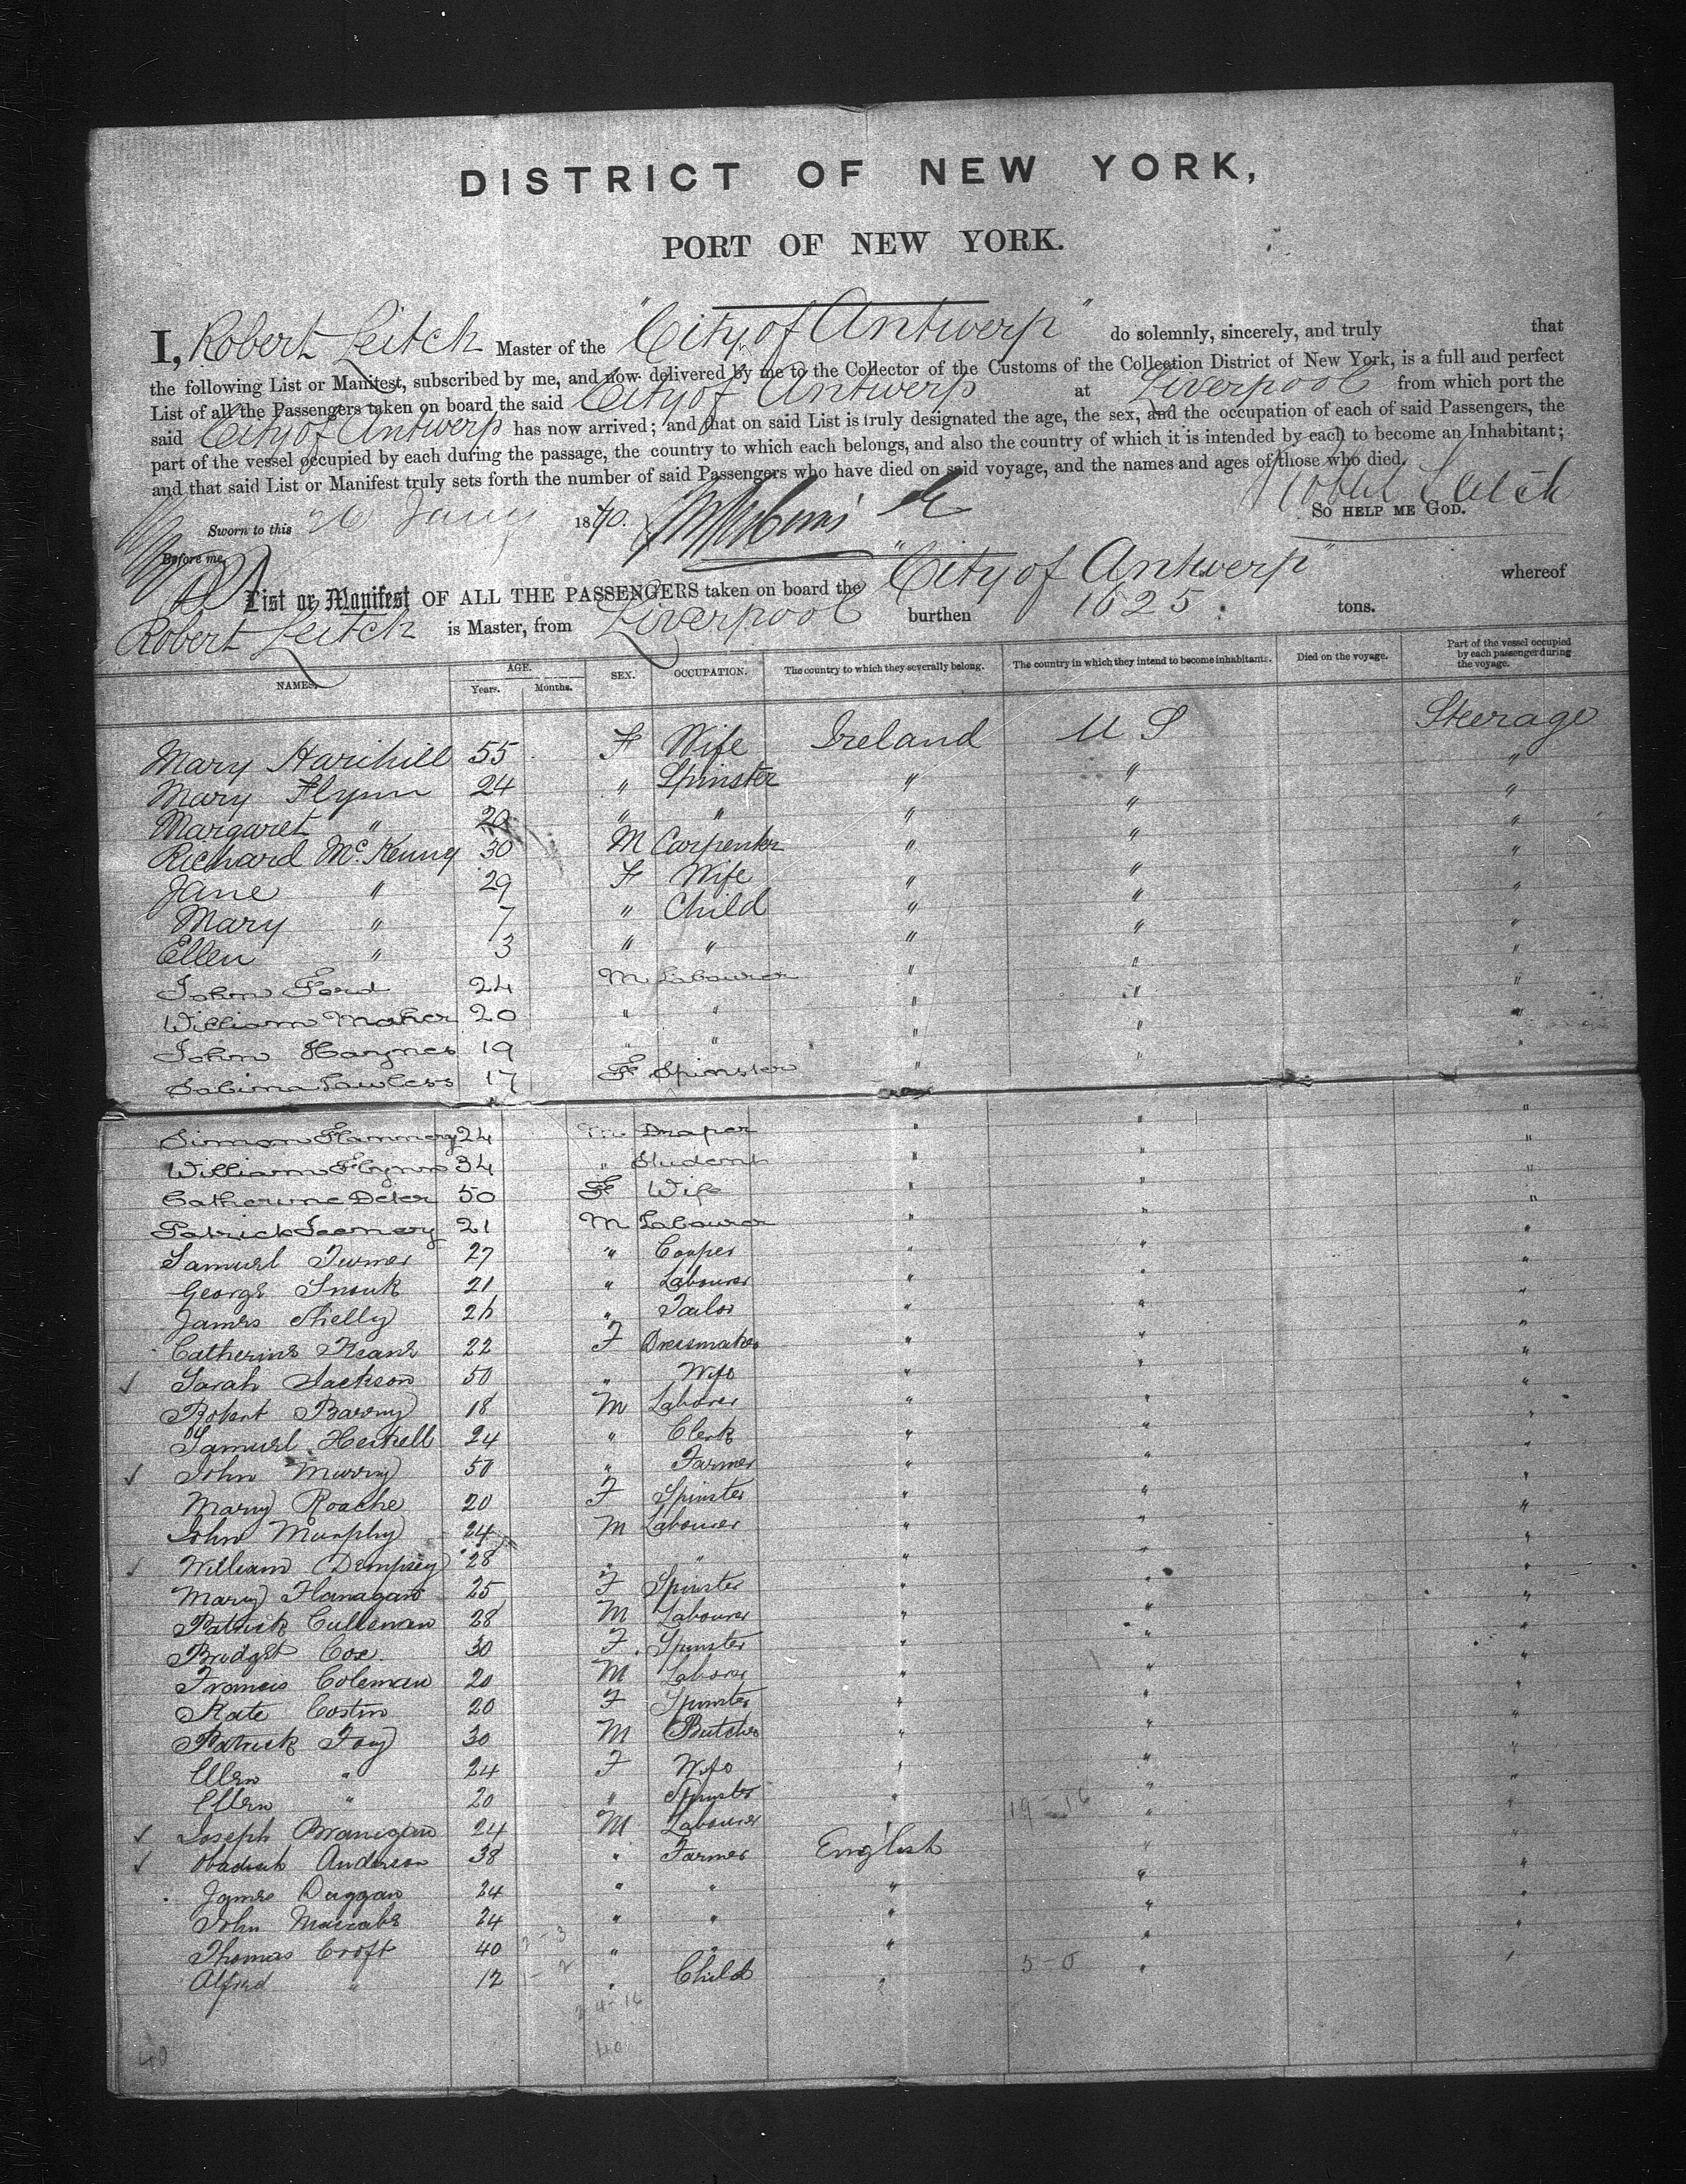 DISTRICT OF NEW YORK,
PORT OF NEW YORK.
I, Robert Leitch Master of the "City of Antwerp" do solemnly, sincerely, and truly that
the following List or Manifest, subscribed by me, and now delivered by me to the Collector of the Customs of the Collection District of New York, is a full and perfect
List of all the Passengers taken on board the said City of Antwerp at Liverpool from which port the
said City of Antwerp has now arrived; and that on said List is truly designated the age, the sex, and the occupation of each of said Passengers, the
part of the vessel occupied by each during the passage, the country to which each belongs, and also the country of which it is intended by each to become an Inhabitant;
and that said List or Manifest truly sets forth the number of said Passengers who have died on said voyage, and the names and ages of those who died.
Robert Leitch
Sworn to this 26 Jany 1870. SO HELP ME GOD.
Before me,
List or Manifest OF ALL THE PASSENGERS taken on board the "City of Antwerp" whereof
Robert Leitch is Master, from Liverpool burthen 1625. tons.
NAMES. AGE. Years. Months. SEX. OCCUPATION. The country to which they severally belong. The country in which they intend to become inhabitants. Died on the voyage. Part of the vessel occupied by each passenger during the voyage.
Mary Harihill 55 F Wife Ireland U S Steerage
Mary Flynn 24 " Spinster " " "
Margaret " 20 " " " " "
Richard McKenny 30 M Carpenter " " "
Jane " 29 F Wife " " "
Mary " 7 " Child " " "
Ellen " 3 " " " " "
John Ford 24 M Labourer " " "
William Maher 20 " " " " "
John Haynes 19 " " " " "
Sabina Lawless 17 F Spinster " " "
Simon Flannery 24 M Draper " " "
William Flynn 34 " Student " " "
Catherine Deter 50 F Wife " " "
Patrick Feenery 21 M Labourer " " "
Samuel Turner 27 " Cooper " " "
George Snouk 21 " Labourer " " "
James Shelly 26 " Tailor " " "
Catherine Keane 22 F Dressmaker " " "
✓ Sarah Jackson 50 " Wife " " "
Robert Barry 18 M Laborer " " "
Samuel Heskell 24 " Clerk " " "
✓ John Murry 50 " Farmer " " "
Mary Roache 20 F Spinster " " "
John Murphy 24 M Labourer " " "
✓ William Dempsey 28 " " " " "
Mary Flanagan 25 F Spinster " " "
Patrick Cullenan 28 M Labourer " " "
Bridget Cox. 30 F. Spinster " " "
Francis Coleman 20 M Laborer " " "
Kate Costin 20 F Spinster " " "
Patrick Foy 30 M Butcher " " "
Ellen " 24 F Wife " " "
Ellen " 20 " Spinster " " "
✓ Joseph Branigan 24 M Labourer " 19-16 " "
✓ Obadiah Anderson 38 " Farmer English " "
James Duggan 24 " " " " "
John Maccabe 24 " " " " "
Thomas Croft 40 " " " " "
Alfred " 12 " Child " 5-0 " "
24-16
40 40